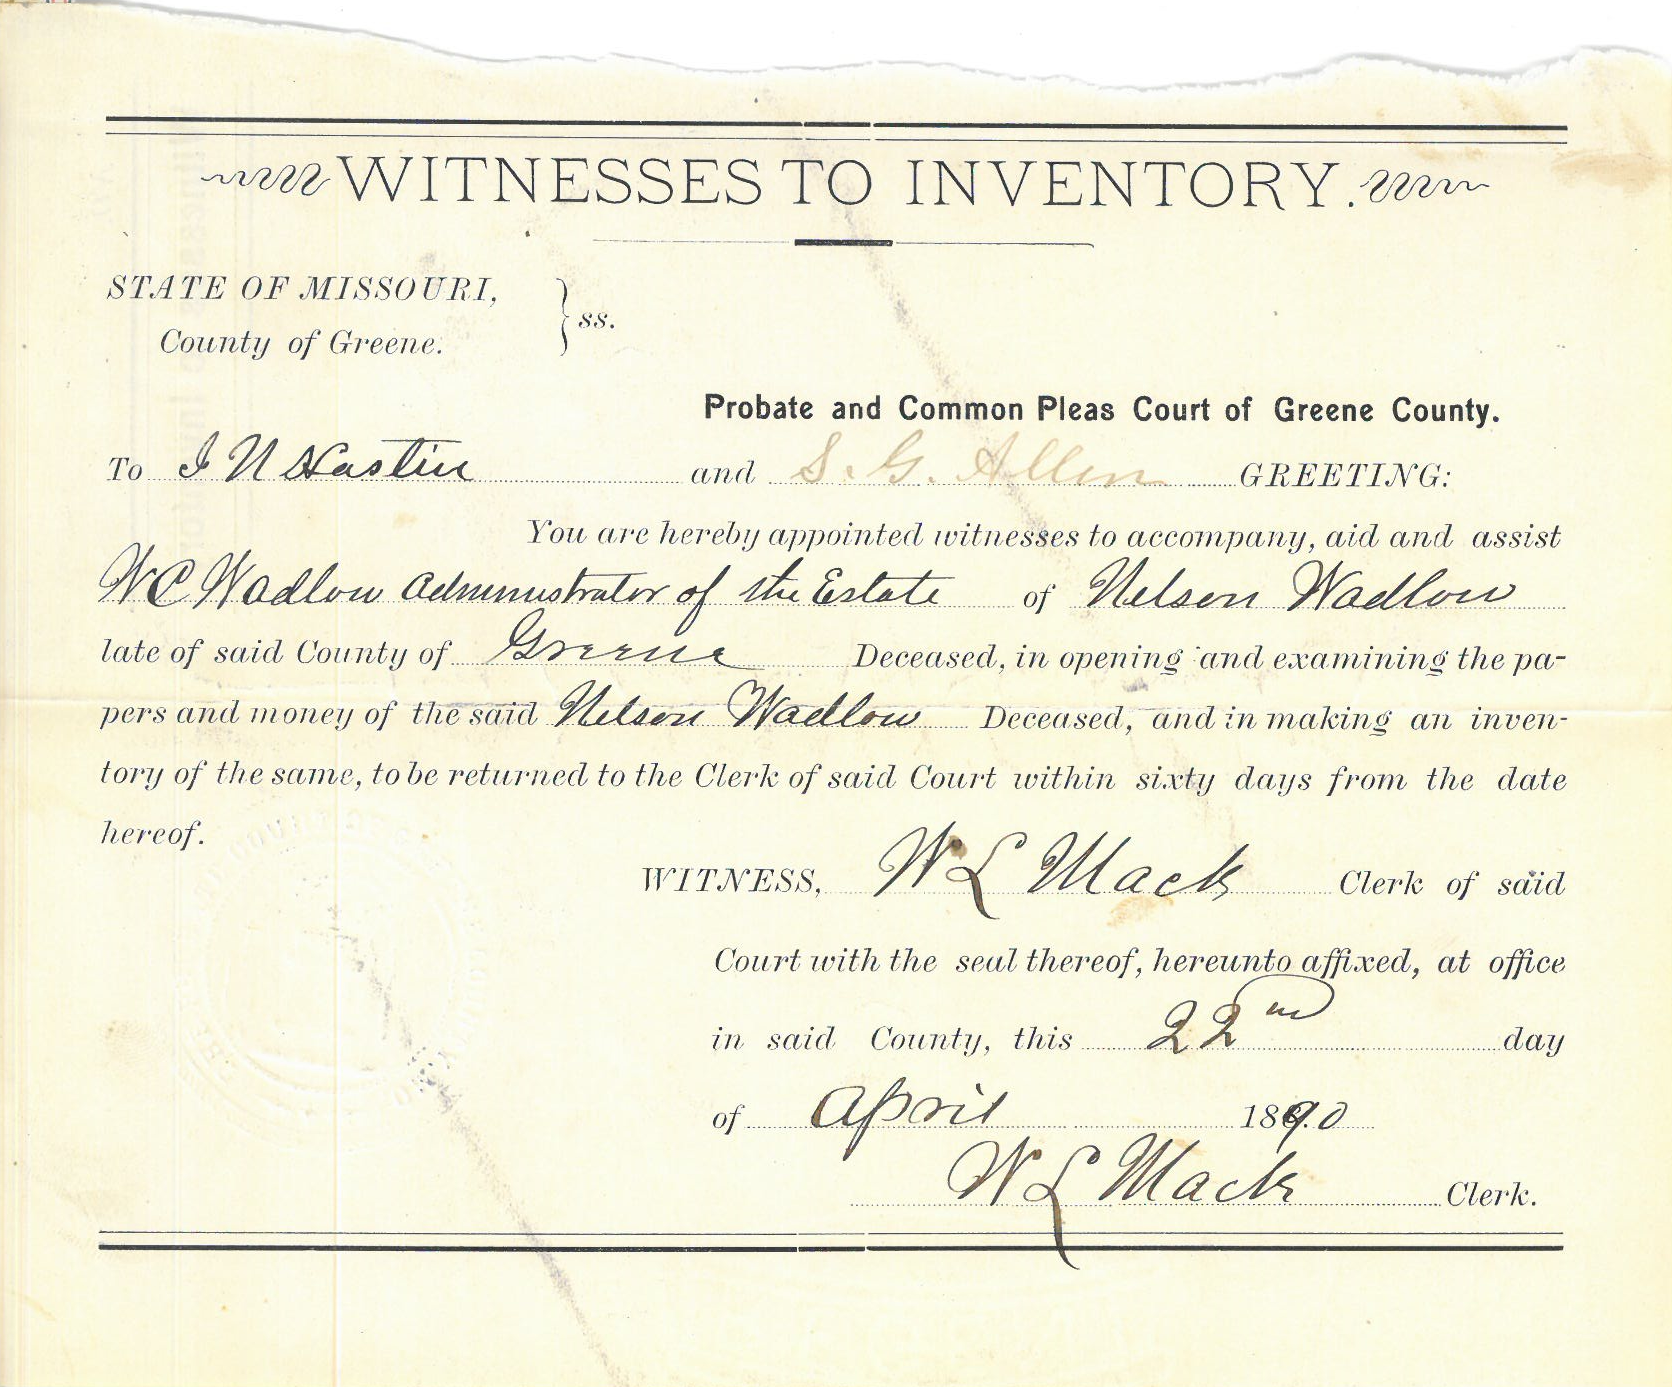 WITNESSES TO INVENTORY.
STATE OF MISSOURI,
County of Greene.
} ss.
Probate and Common Pleas Court of Greene County.
To I N Hastin and S. G. Allen GREETING:
You are hereby appointed witnesses to accompany, aid and assist
W C Wadlow administrator of the Estate of Nelson Wadlow
late of said County of Greene Deceased, in opening and examining the pa-
pers and money of the said Nelson Wadlow Deceased, and in making an inven-
tory of the same, to be returned to the Clerk of said Court within sixty days from the date
hereof.
WITNESS, W L Mack Clerk of said
Court with the seal thereof, hereunto affixed, at office
in said County, this 22nd day
of April 1890
W L Mack Clerk.